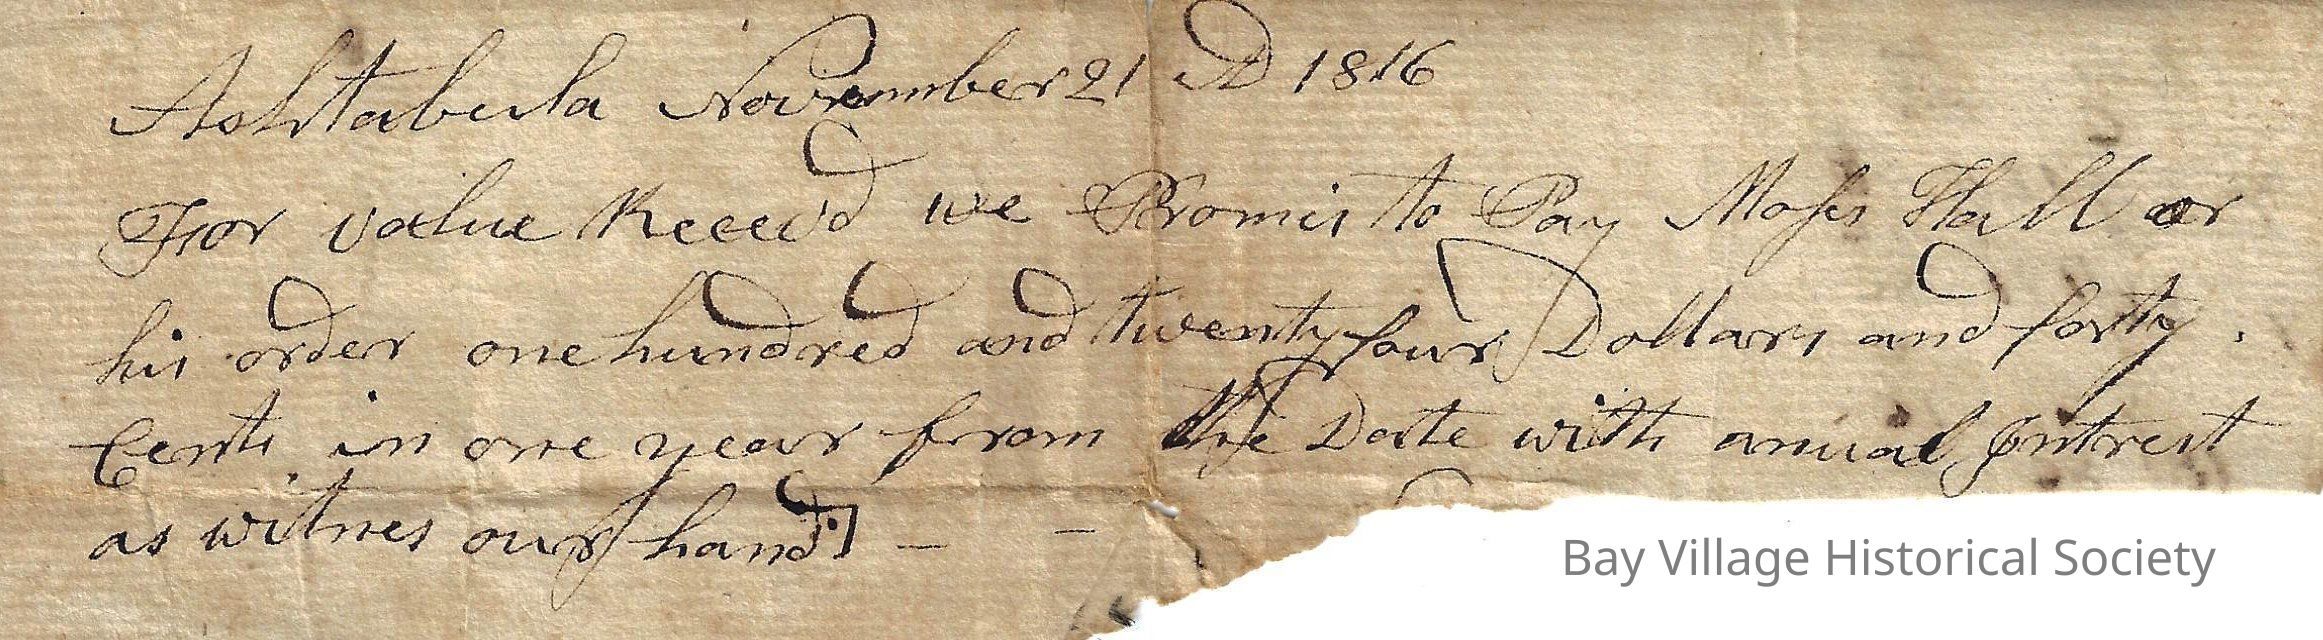 Ashtabula November 21 AD 1816
For value Receevd we Promis to Pay Moses Hall or
his order one hundred and twenty four Dollars and forty
Cents in one year from the Date with anual Intrest
as witnes our hand
Bay Village Historical Society